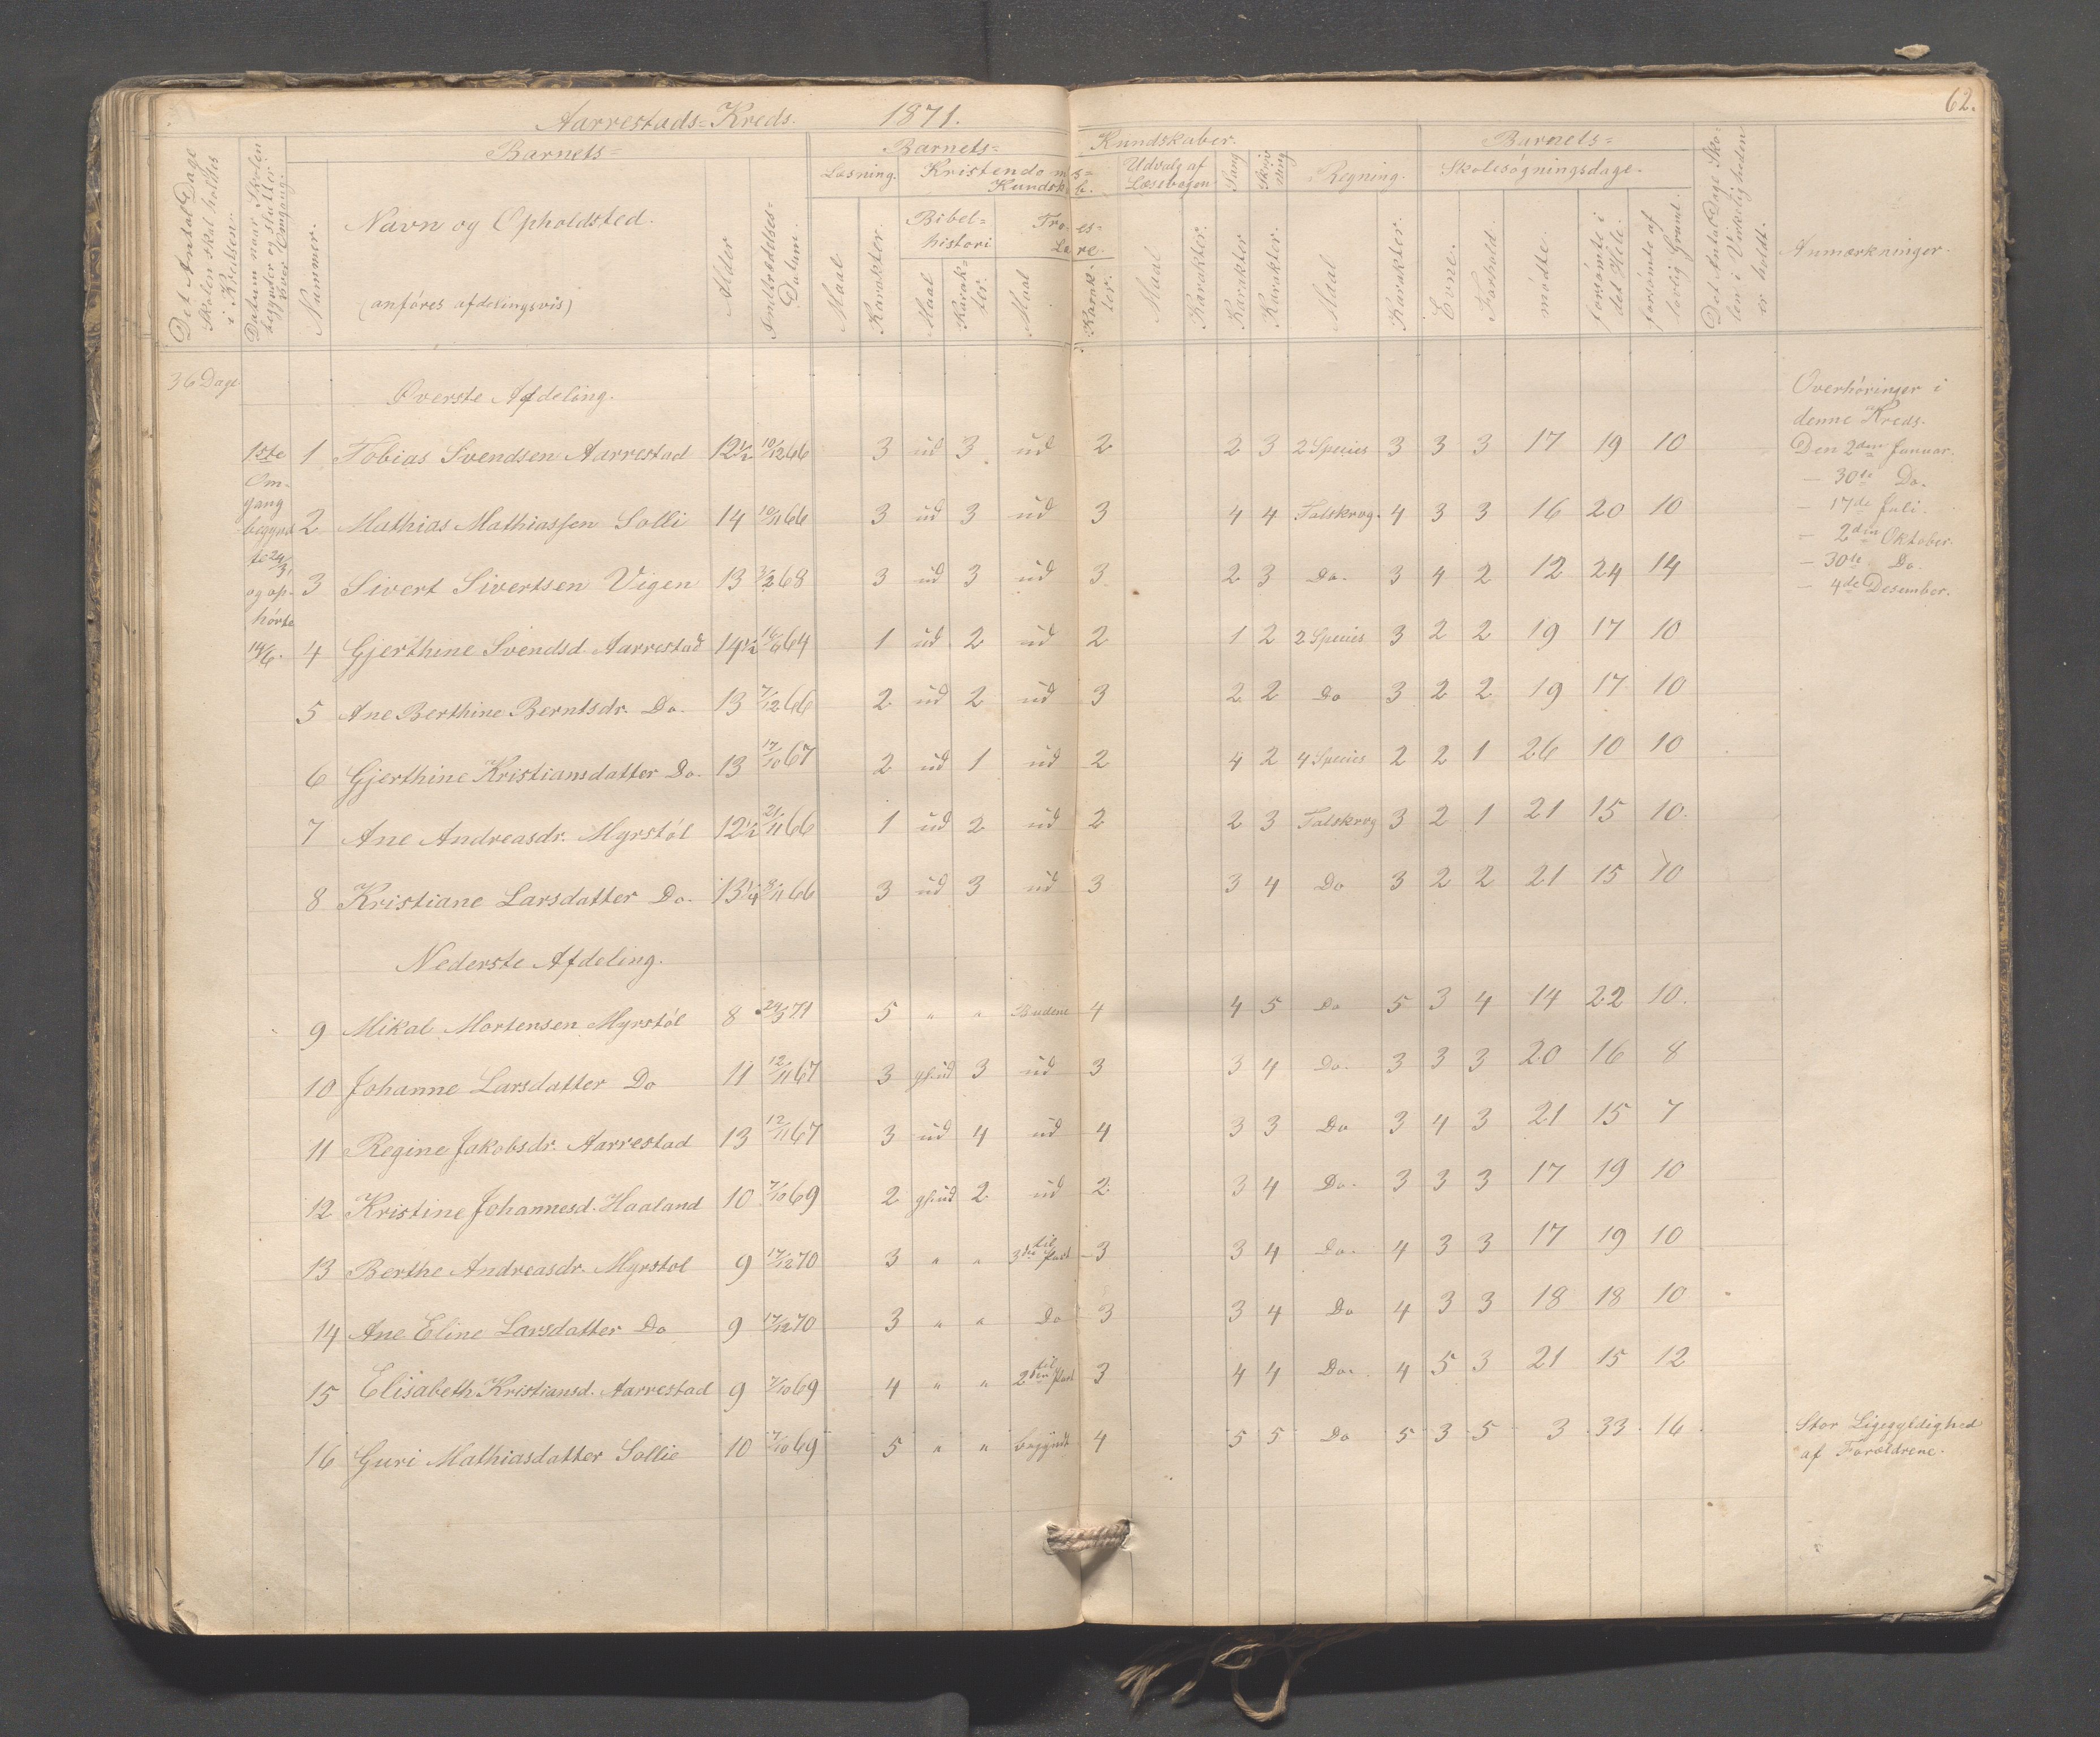 Aarrestads=Kreds. 1871. 62.
Det Antal Dage Skolen skal holdes i Kredsen.
Datum naar Skolen begynder og slutter hver Omgang.
Barnets=
Nummer.
Navn og Opholdsted.
(anføres afdelingsvis)
Alder
Indtrædelses=Datum.
Barnets= Kundskaber.
Læsning. Kristendoms= Kundsk. Udvalg af Læsebogen Sang Skrivning Regning.
Bibel=histori Troes=Lære.
Maal Karakter. Maal Karak=ter. Maal Karak=ter. Maal Karakter. Karakter Karakter. Maal Karakter.
Barnets=
Skolesøgningsdage.
Evne. Forhold. mødte. forsømte i det Hele. forsømte af lovlig Grund.
Det Antal Dage Skolen i Virkeligheden er holdt.
Anmærkninger.
36 Dage.
Øverste Afdeling.
1ste Omgang begyndte 24/3, og ophørte 14/6.
1 Tobias Svendsen Aarrestad 12½ 10/12 66 3 ud 3 ud 2 2 3 2 Species 3 3 3 17 19 10
2 Mathias Mathiassen Solli 14 10/11 66 3 ud 3 ud 3 4 4 Talskrvg. 4 3 3 16 20 10
3 Sivert Sivertsen Vigen 13 3/2 68 3 ud 3 ud 3 2 3 Do. 3 4 2 12 24 14
4 Gjerthine Svendsd. Aarrestad 14½ 16/6 64 1 ud 2 ud 2 1 2 2 Species 3 2 2 19 17 10
5 Ane Berthine Berntsdr. Do. 13 7/12 66 2 ud 2 ud 3 2 2 Do 3 2 2 19 17 10
6 Gjerthine Kristiansdatter Do. 13 17/10 67 2 ud 1 ud 2 4 2 4 Species 2 2 1 26 10 10
7 Ane Andreasdr. Myrstøl 12½ 21/11 66 1 ud 2 ud 2 2 3 Talskrvg 3 2 1 21 15 10.
8 Kristiane Larsdatter Do. 13¼ 8/11 66 3 ud 3 ud 3 3 4 Do 3 2 2 21 15 10
Nederste Afdeling.
9 Mikal Mortensen Myrstøl 8 24/3 71 5 " " Budene 4 4 5 Do 5 3 4 14 22 10.
10 Johanne Larsdatter Do 11 12/11 67 3 gl. ud 3 ud 3 3 4 Do. 3 3 3 20 16 8
11 Regine Jakobsdr. Aarrestad 13 12/11 67 3 ud 4 ud 4 3 3 Do 3 4 3 21 15 7
12 Kristine Johannesd. Haaland 10 7/10 69 2 gl. ud 2 ud 2 3 4 Do. 3 3 3 17 19 10
13 Berthe Andreasdr. Myrstøl 9 17/12 70 3 " " til 3die Part 3 3 4 Do. 4 3 3 17 19 10
14 Ane Eline Larsdatter Do 9 17/12 70 3 " " Do 3 3 4 Do 4 3 3 18 18 10
15 Elisabeth Kristiansd. Aarrestad 9 7/10 69 4 " " til 2den Part 3 4 4 Do. 4 5 3 21 15 12
16 Guri Mathiasdatter Sollie 10 7/10 69 5 " " begyndt 4 5 5 Do 5 3 5 3 33 16
Overhøringer i
denne Kreds.
Den 2den Januar.
— 30te Do.
— 17de Juli.
— 2den Oktober.
— 30te Do.
— 4de Desember.
Stor Ligegyldighed
af Forældrene.